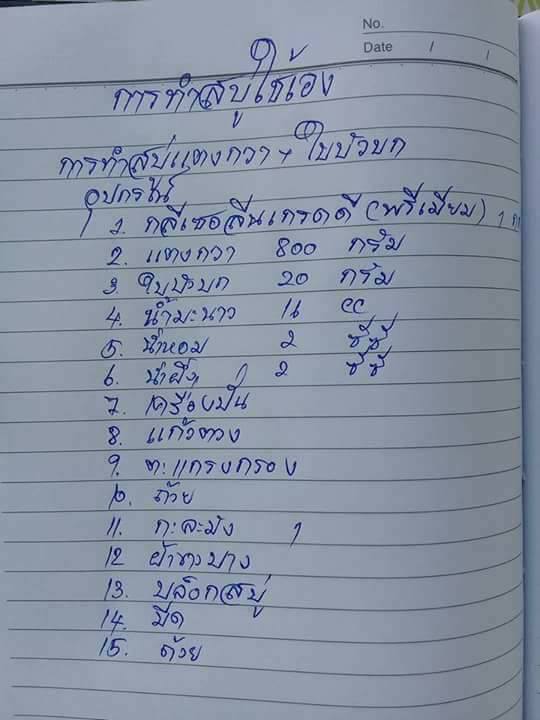 No.
Date / /
การทำสบู่ใช้เอง
การทำสบู่แตงกวา + ใบบัวบก
อุปกรณ์
1. กลีเซอลีนเกรดดี (พรีเมียม) 1
2. แตงกวา 800 กรัม
3. ใบบัวบก 20 กรัม
4. น้ำมะนาว cc
5. น้ำหอม 2 ซีซี
6. น้ำผึ้ง 2 ซีซี
7. เครื่องปั่น
8. แก้วตวง
9. ตะแกรงกรอง
10. ถ้วย
11. กะละมัง 1
12 ผ้าขาวบาง
13. บล็อกสบู่
14. มีด
15. ถ้วย